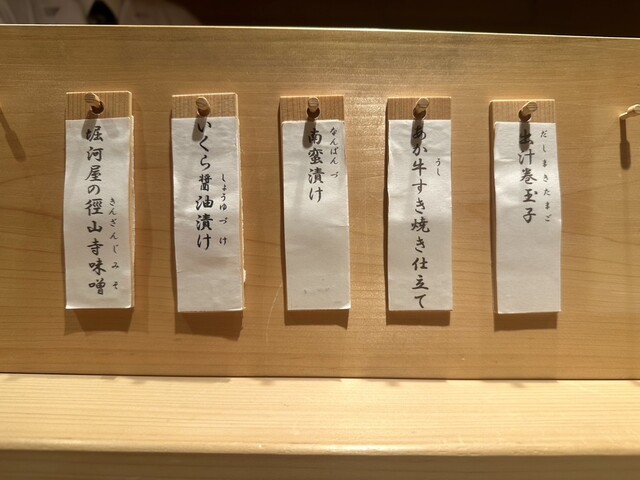 出汁巻玉子
だしまきたまご
あか牛すき焼き仕立て
うし
南蛮漬け
なんばんづ
いくら醤油漬け
しょうゆづけ
堀河屋の徑山寺味噌
きんざんじみそ